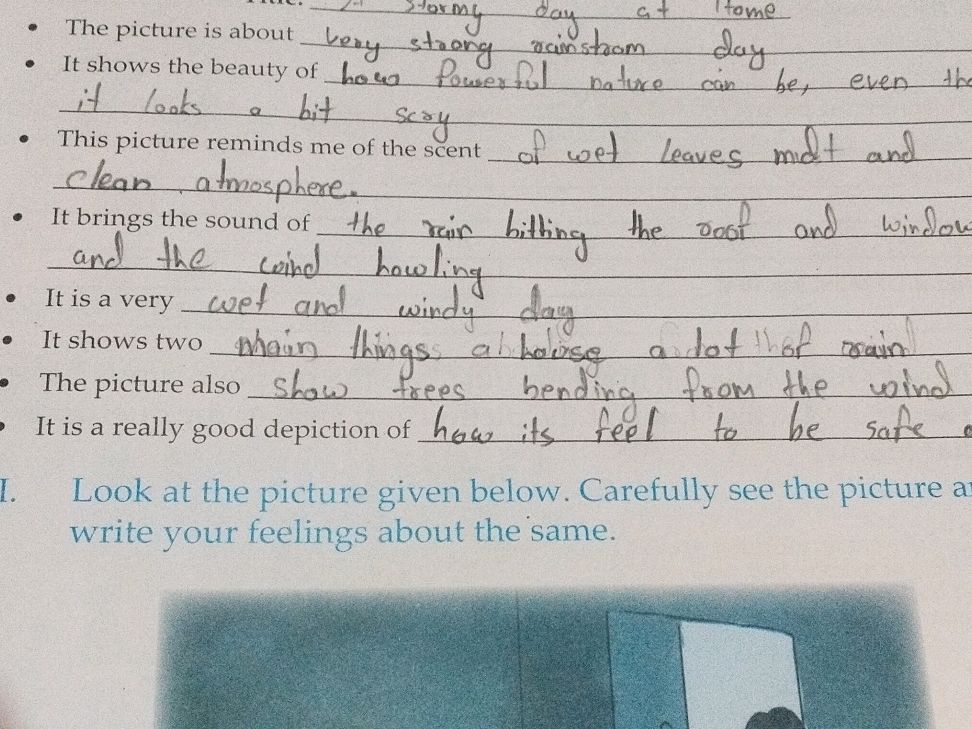 Stormy day at Home
• The picture is about very strong rainstrom day
• It shows the beauty of how Powerful nature can be, even
it looks a bit scry
• This picture reminds me of the scent of wet leaves and
clean atmosphere.
• It brings the sound of the rain hitting the roof and window
and the wind howling
• It is a very wet and windy day
• It shows two main things a house a lot of rain
• The picture also show trees bending from the wind
• It is a really good depiction of how its feel to be safe
I. Look at the picture given below. Carefully see the picture
write your feelings about the same.